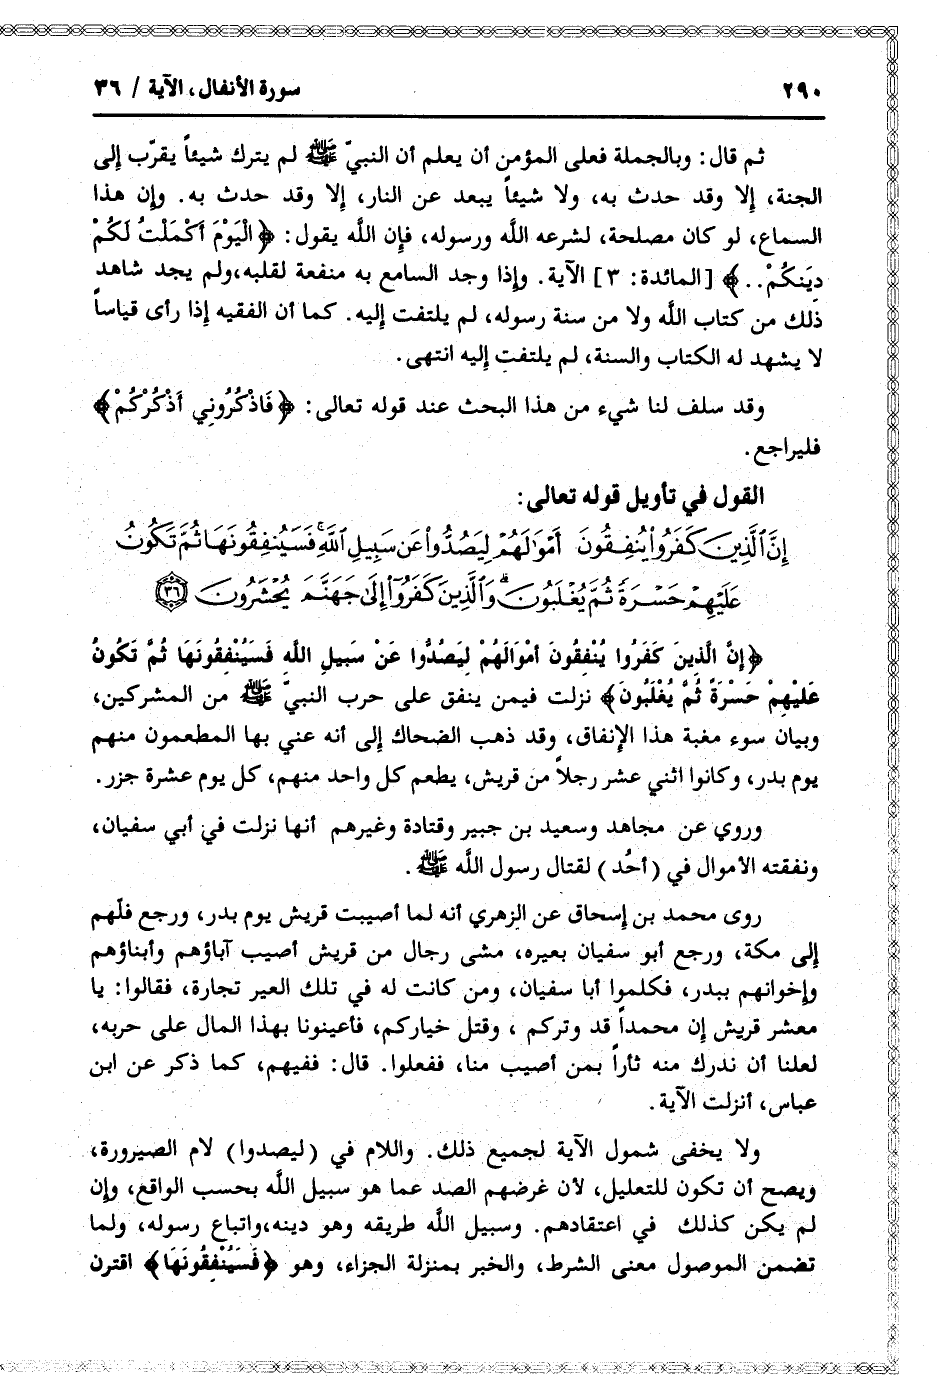 ٢٩٠ سورة الأنفال، الآية / ٣٦
ثم قال: وبالجملة فعلى المؤمن أن يعلم أن النبيّ ﷺ لم يترك شيئاً يقرّب إلى
الجنة، إلا وقد حدث به، ولا شيئاً يبعد عن النار، إلا وقد حدث به. وإن هذا
السماع، لو كان مصلحة، لشرعه اللَّه ورسوله، فإن اللَّه يقول: ﴿الْيَوْمَ أَكْمَلْتُ لَكُمْ
دِينَكُمْ..﴾ [المائدة: ٣] الآية. وإذا وجد السامع به منفعة لقلبه،ولم يجد شاهد
ذلك من كتاب اللَّه ولا من سنة رسوله، لم يلتفت إليه. كما أن الفقيه إذا رأى قياساً
لا يشهد له الكتاب والسنة، لم يلتفت إليه انتهى.
وقد سلف لنا شيء من هذا البحث عند قوله تعالى: ﴿فَاذْكُرُونِي أَذْكُرْكُمْ﴾
فليراجع.
القول في تأويل قوله تعالى:
إِنَّ ٱلَّذِينَ كَفَرُوا۟ يُنفِقُونَ أَمْوَٰلَهُمْ لِيَصُدُّوا۟ عَن سَبِيلِ ٱللَّهِ ۚ فَسَيُنفِقُونَهَا ثُمَّ تَكُونُ
عَلَيْهِمْ حَسْرَةً ثُمَّ يُغْلَبُونَ ۗ وَٱلَّذِينَ كَفَرُوٓا۟ إِلَىٰ جَهَنَّمَ يُحْشَرُونَ ٣٦
﴿إِنَّ الَّذِينَ كَفَرُوا يُنْفِقُونَ أَمْوَالَهُمْ لِيَصُدُّوا عَنْ سَبِيلِ اللَّهِ فَسَيُنْفِقُونَهَا ثُمَّ تَكُونُ
عَلَيْهِمْ حَسْرَةً ثُمَّ يُغْلَبُونَ﴾ نزلت فيمن ينفق على حرب النبيّ ﷺ من المشركين،
وبيان سوء مغبة هذا الإنفاق، وقد ذهب الضحاك إلى أنه عني بها المطعمون منهم
يوم بدر، وكانوا اثني عشر رجلاً من قريش، يطعم كل واحد منهم، كل يوم عشرة جزر.
وروي عن مجاهد وسعيد بن جبير وقتادة وغيرهم أنها نزلت في أبي سفيان،
ونفقته الأموال في (أحُد) لقتال رسول اللَّه ﷺ.
روى محمد بن إسحاق عن الزهري أنه لما أصيبت قريش يوم بدر، ورجع فلّهم
إلى مكة، ورجع أبو سفيان بعيره، مشى رجال من قريش أصيب آباؤهم وأبناؤهم
وإخوانهم ببدر، فكلموا أبا سفيان، ومن كانت له في تلك العير تجارة، فقالوا: يا
معشر قريش إن محمداً قد وتركم ، وقتل خياركم، فأعينونا بهذا المال على حربه،
لعلنا أن ندرك منه ثأراً بمن أصيب منا، ففعلوا. قال: ففيهم، كما ذكر عن ابن
عباس، أنزلت الآية.
ولا يخفى شمول الآية لجميع ذلك. واللام في (ليصدوا) لام الصيرورة،
ويصح أن تكون للتعليل، لأن غرضهم الصد عما هو سبيل اللَّه بحسب الواقع، وإن
لم يكن كذلك في اعتقادهم. وسبيل اللَّه طريقه وهو دينه،واتباع رسوله، ولما
تضمن الموصول معنى الشرط، والخبر بمنزلة الجزاء، وهو ﴿فَسَيُنْفِقُونَهَا﴾ اقترن